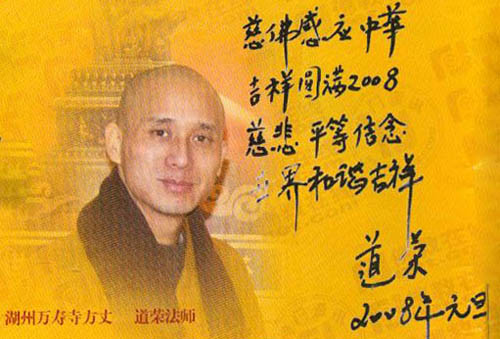 慈佛感应中華
吉祥圆满2008
慈悲平等信念
世界和谐吉祥
道荣
2008年元旦
湖州万寿寺方丈 道荣法师